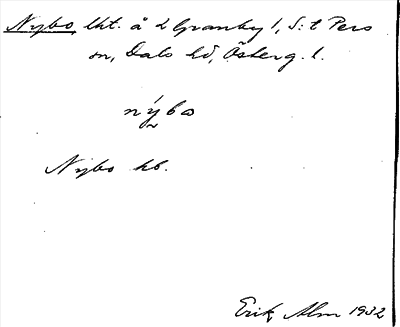 Nybo, lht. å 2 Granby 1, S:t Pers
sn, Dals hd, Österg. l.
nýbo
Nybo hb.
Erik Alm 1932